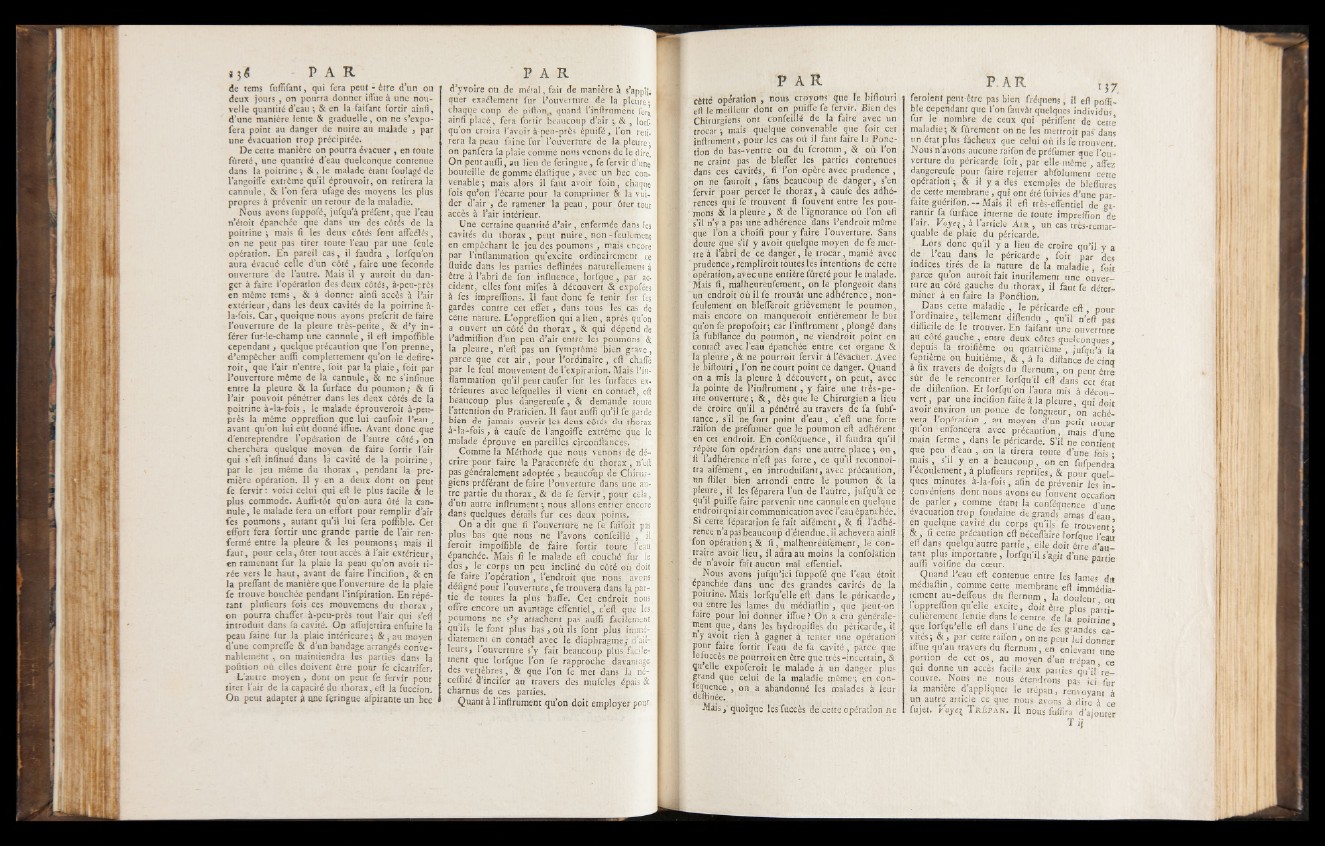 136 PAR
de tems suffisant, qui sera peut-être d'un ou
deux jours, on pourra donner issue à une nou-
velle quantité d'eau ; & en la faisant sortir ainsi,
d'une manière lente & graduelle, on ne s'expo-
sera point au danger de nuire au malade, par
une évacuation trop précipitée.
De cette manière on pourra évacuer, en toute
sûreté, une quantité d'eau quelconque contenue
dans la poitrine ; &, le malade étant soulagé de
l'angoisse extrême qu'il éprouvoit, on retirera la
cannule, & l'on fera usage des moyens les plus
propres à prévenir un retour de la maladie.
Nous avons supposé, jusqu'à présent, que l'eau
n'étoit épanchée que dans un des côtés de la
poitrine ; mais si les deux côtés sont affectés,
on ne peut pas tirer toute l'eau par une seule
opération. En pareil cas, il faudra, lorsqu'on
aura évacué celle d'un côté, faire une seconde
ouverture de l'autre. Mais il y auroit du dan-
ger à faire l'opération des deux côtés, à-peu-près
en même tems, & à donner ainsi accès à l'air
extérieur, dans les deux cavités de la poitrine à-
la-fois. Car, quoique nous ayons prescrit de faire
l'ouverture de la pleure très-petite, & d'y in-
sérer sur-le-champ une cannule, il est impossible
cependant, quelque précaution que l'on prenne,
d'empêcher aussi complettement qu'on le desire-
roit, que l'air n'entre, soit par la plaie, soit par
l'ouverture même de la cannule, & ne s'insinue
entre la pleure & la surface du poumon ; & si
l'air pouvoit pénétrer dans les deux côtés de la
poitrine à-la-fois, le malade éprouveroit à-peu-
près la même oppression que lui causoit l'eau,
avant qu'on lui eût donné issue. Avant donc que
d'entreprendre l'opération de l'autre côté, on
cherchera quelque moyen de faire sortir l'air
qui s'est insinué dans la cavité de la poitrine,
par le jeu même du thorax, pendant la pre-
mière opération. Il y en a deux dont on peut
se servir : voici celui qui est le plus facile & le
plus commode. Aussi-tôt qu'on aura ôté la can-
nule, le malade fera un effort pour remplir d'air
ses poumons, autant qu'il lui sera possible. Cet
effort fera sortir une grande partie de l'air ren-
fermé entre la pleure & les poumons ; mais il
faut, pour cela, ôter tout accès à l'air extérieur,
en ramenant sur la plaie la peau qu'on avoit ti-
rée vers le haut, avant de faire l'incision, & en
la pressant de manière que l'ouverture de la plaie
se trouve bouchée pendant l'inspiration. En répé-
tant plusieurs fois ces mouvemens du thorax,
on pourra chasser à-peu-près tout l'air qui s'est
introduit dans sa cavité. On assujettira ensuite la
peau saine sur la plaie intérieure ; &, au moyen
d'une compresse & d'un bandage arrangés conve-
nablement, on maintiendra les parties dans la
position où elles doivent être pour se cicatriser.
L'autre moyen, dont on peut se servir pour
tirer l'air de la capacité du thorax, est la succion.
On peut adapter à une seringue aspirante un bec
PAR
d'yvoire ou de métal, fait de manière à s'appli-
quer exactement sur l'ouverture de la pleure ;
chaque coup de piston, quand l'instrument sera
ainsi placé, fera sortir beaucoup d'air ; &, lors-
qu'on croira l'avoir à peu-près épuisé, l'on reti-
rera la peau saine sur l'ouverture de la pleure ;
on pansera la plaie comme nous venons de le dire.
On peut aussi, au lieu de seringue, se servir d'une
bouteille de gomme élastique, avec un bec con-
venable ; mais alors il faut avoir soin, chaque
fois qu'on l'écarte pour la comprimer & la vui-
der d'air, de ramener la peau, pour ôter tout
accès à l'air intérieur.
Une certaine quantité d'air, enfermée dans les
cavités du thorax, peut nuire, non-seulement
en empêchant le jeu des poumons, mais encore
par l'inflammation qu'excite ordinairement ce
fluide dans les parties destinées naturellement à
être à l'abri de son influence, lorsque, par ac-
cident, elles sont mises à découvert & exposées
à ses impressions. Il faut donc se tenir sur ses
gardes contre cet effet, dans tous les cas de
cette nature. L'oppression qui a lieu, après qu'on
a ouvert un côté du thorax, & qui dépend de
l'admission d'un peu d'air entre les poumons &
la pleure, n'est pas un symptôme bien grave,
parce que cet air, pour l'ordinaire, est chassé
par le seul mouvement de l'expiration. Mais l'in-
flammation qu'il peut causer sur les surfaces ex-
térieures avec lesquelles il vient en contact, est
beaucoup plus dangereuse, & demande toute
l'attention du Praticien. Il faut aussi qu'il se garde
bien de jamais ouvrir les deux côtés du thorax
à-la-fois, à cause de l'angoisse extrême que le
malade éprouve en pareilles circonstances.
Comme la Méthode que nous venons de dé-
crire pour faire la Paracentèse du thorax, n'est
pas généralement adoptée, beaucoup de Chirur-
giens préférant de faire l'ouverture dans une au-
tre partie du thorax, & de se servir, pour cela,
d'un autre instrument ; nous allons entrer encore
dans quelques détails sur ces deux points.
On a dit que si l'ouverture ne se faisoit pas
plus bas que nous ne l'avons conseillé, il
seroit impossible de faire sortir toute l'eau
épanchée. Mais si le malade est couché sur le
dos, le corps un peu incliné du côté où doit
se faire l'opération, l'endroit que nous avons
désigné pour l'ouverture, se trouvera dans la par-
tie de toutes la plus basse. Cet endroit nous
offre encore un avantage essentiel, c'est que les
poumons ne s'y attachent pas aussi facilement
qu'ils le font plus bas, où ils sont plus immé-
diatement en contact avec le diaphragme ; d'ail-
leurs, l'ouverture s'y fait beaucoup plus facile-
ment que lorsque l'on se rapproche davantage
des vertèbres, & que l'on se met dans la né-
cessité d'inciser au travers des muscles épais &
charnus de ces parties.
Quant à l'instrument qu'on doit employer pour
PAR
cette opération, nous croyons que le bistouri
est le meilleur dont on puisse se servir. Bien des
Chirurgiens ont conseillé de la faire avec un
trocar ; mais quelque convenable que soit cet
instrument, pour les cas où il faut faire la Ponc-
tion du bas-ventre ou du scrotum, & où l'on
ne craint pas de blesser les parties contenues
dans ces cavités, si l'on opère avec prudence,
on ne sauroit, sans beaucoup de danger, s'en
servir pour percer le thorax, à cause des adhé-
rences qui se trouvent si souvent entre les pou-
mons & la pleure, & de l'ignorance où l'on est
s'il n'y a pas une adhérence dans l'endroit même
que l'on a choisi pour y faire l'ouverture. Sans
doute que s'il y avoit quelque moyen de se met-
tre à l'abri de ce danger, le trocar, manié avec
prudence, rempliroit toutes les intentions de cette
opération, avec une entière sûreté pour le malade.
Mais si, malheureusement, on le plongeoit dans
un endroit où il se trouvât une adhérence, non-
seulement on blesseroit grièvement le poumon,
mais encore on manqueroit entièrement le but
qu'on se proposoit ; car l'instrument, plongé dans
la substance du poumon, ne viendroit point en
contact avec l'eau épanchée entre cet organe &
la pleure, & ne pourroit servir à l'évacuer. Avec
le bistouri, l'on ne court point ce danger. Quand
on a mis la pleure à découvert, on peut, avec
la pointe de l'instrument, y faire une très-pe-
tite ouverture ; &, dès que le Chirurgien a lieu
de croire qu'il a pénétré au travers de sa subs-
tance, s'il ne sort point d'eau, c'est une forte
raison de présumer que le poumon est adhérent
en cet endroit. En conséquence, il faudra qu'il
répète son opération dans une autre place ; ou,
si l'adhérence n'est pas forte, ce qu'il reconnoî-
tra aisément, en introduisant, avec précaution,
un stilet bien arrondi entre le poumon & la
pleure, il les séparera l'un de l'autre, jusqu'à ce
qu'il puisse faire parvenir une cannule en quelque
endroit qui ait communication avec l'eau épanchée.
Si cette séparation se fait aisément, & si l'adhé-
rence n'a pas beaucoup d'étendue, il achevera ainsi
son opération ; & si, malheureusement, le con-
traire avoit lieu, il aura au moins la consolation
de n'avoir fait aucun mal essentiel.
Nous avons jusqu'ici supposé que l'eau étoit
épanchée dans une des grandes cavités de la
poitrine. Mais lorsqu'elle est dans le péricarde,
ou entre les lames du médiastin, que peut-on
faire pour lui donner issue ? On a cru générale-
ment que, dans les hydropisies du péricarde, il
n'y avoit rien à gagner à tenter une opération
pour faire sortir l'eau de sa cavité, parce que
le succès ne pourroit en être que très-incertain, &
qu'elle exposeroit le malade à un danger plus
grand que celui de la maladie même ; en con-
séquence, on a abandonné les malades à leur
destinée.
Mais, quoique les succès de cette opération ne
PAR 137
seroient peut être pas bien fréquens, il est possi-
ble cependant que l'on sauvât quelques individus,
sur le nombre de ceux qui périssent de cette
maladie ; & sûrement on ne les mettroit pas dans
un état plus fâcheux que celui où ils se trouvent.
Nous n'avons aucune raison de présumer que l'ou-
verture du péricarde soit, par elle-même, assez
dangereuse pour faire rejetter absolument cette
opération ; & il y a des exemples de blessures
de cette membrane, qui ont été suivies d'une par-
faite guérison. -- Mais il est très-essentiel de ga-
rantir sa surface interne de toute impression de
l'air. Voyez, à l'article AIR, un cas très-remar-
quable de plaie du péricarde.
Lors donc qu'il y a lieu de croire qu'il y a
de l'eau dans le péricarde, soit par des
indices tirés de la nature de la maladie, soit
parce qu'on auroit fait inutilement une ouver-
ture au côté gauche du thorax, il faut se déter-
miner à en faire la Ponction.
Dans cette maladie, le péricarde est, pour
l'ordinaire, tellement distendu, qu'il n'est pas
difficile de le trouver. En faisant une ouverture
au côté gauche, entre deux côtes quelconques,
depuis la troisième ou quatrième, jusqu'à la
septième ou huitième, &, à la distance de cinq
à six travers de doigts du sternum, on peut être
sûr de le rencontrer lorsqu'il est dans cet état
de distension. Et lorsqu'on l'aura mis à décou-
vert, par une incision faite à la pleure, qui doit
avoir environ un pouce de longueur, on aché-
vera l'opération, au moyen d'un petit trocar
qu'on enfoncera avec précaution, mais d'une
main ferme, dans le péricarde. S'il ne contient
que peu d'eau, on la tirera toute d'une fois ;
mais, s'il y en a beaucoup, on en suspendra
l'écoulement, à plusieurs reprises, & pour quel-
ques minutes à-la-fois, afin de prévenir les in-
convéniens dont nous avons eu souvent occasion
de parler, comme étant la conséquence d'une
évacuation trop soudaine de grands amas d'eau,
en quelque cavité du corps qu'ils se trouvent ;
&, si cette précaution est nécessaire lorsque l'eau
est dans quelqu'autre partie, elle doit être d'au-
tant plus importante, lorsqu'il s'agit d'une partie
aussi voisine du cœur.
Quand l'eau est contenue entre les lames du
médiastin, comme cette membrane est immédia-
tement au-dessous du sternum, la douleur, ou
l'oppression qu'elle excite, doit être plus parti-
culièrement sentie dans le centre de la poitrine,
que lorsqu'elle est dans l'une de ses grandes ca-
vités ; &, par cette raison, on ne peut lui donner
issue qu'au travers du sternum, en enlevant une
portion de cet os, au moyen d'un trépan, ce
qui donne un accès facile aux parties qu'il re-
couvre. Nous ne nous étendrons pas ici sur
la manière d'appliquer le trépan, renvoyant à
un autre article ce que nous avons à dire à ce
sujet. Voyez TRÉPAN. Il nous suffira d'ajouter
T ij